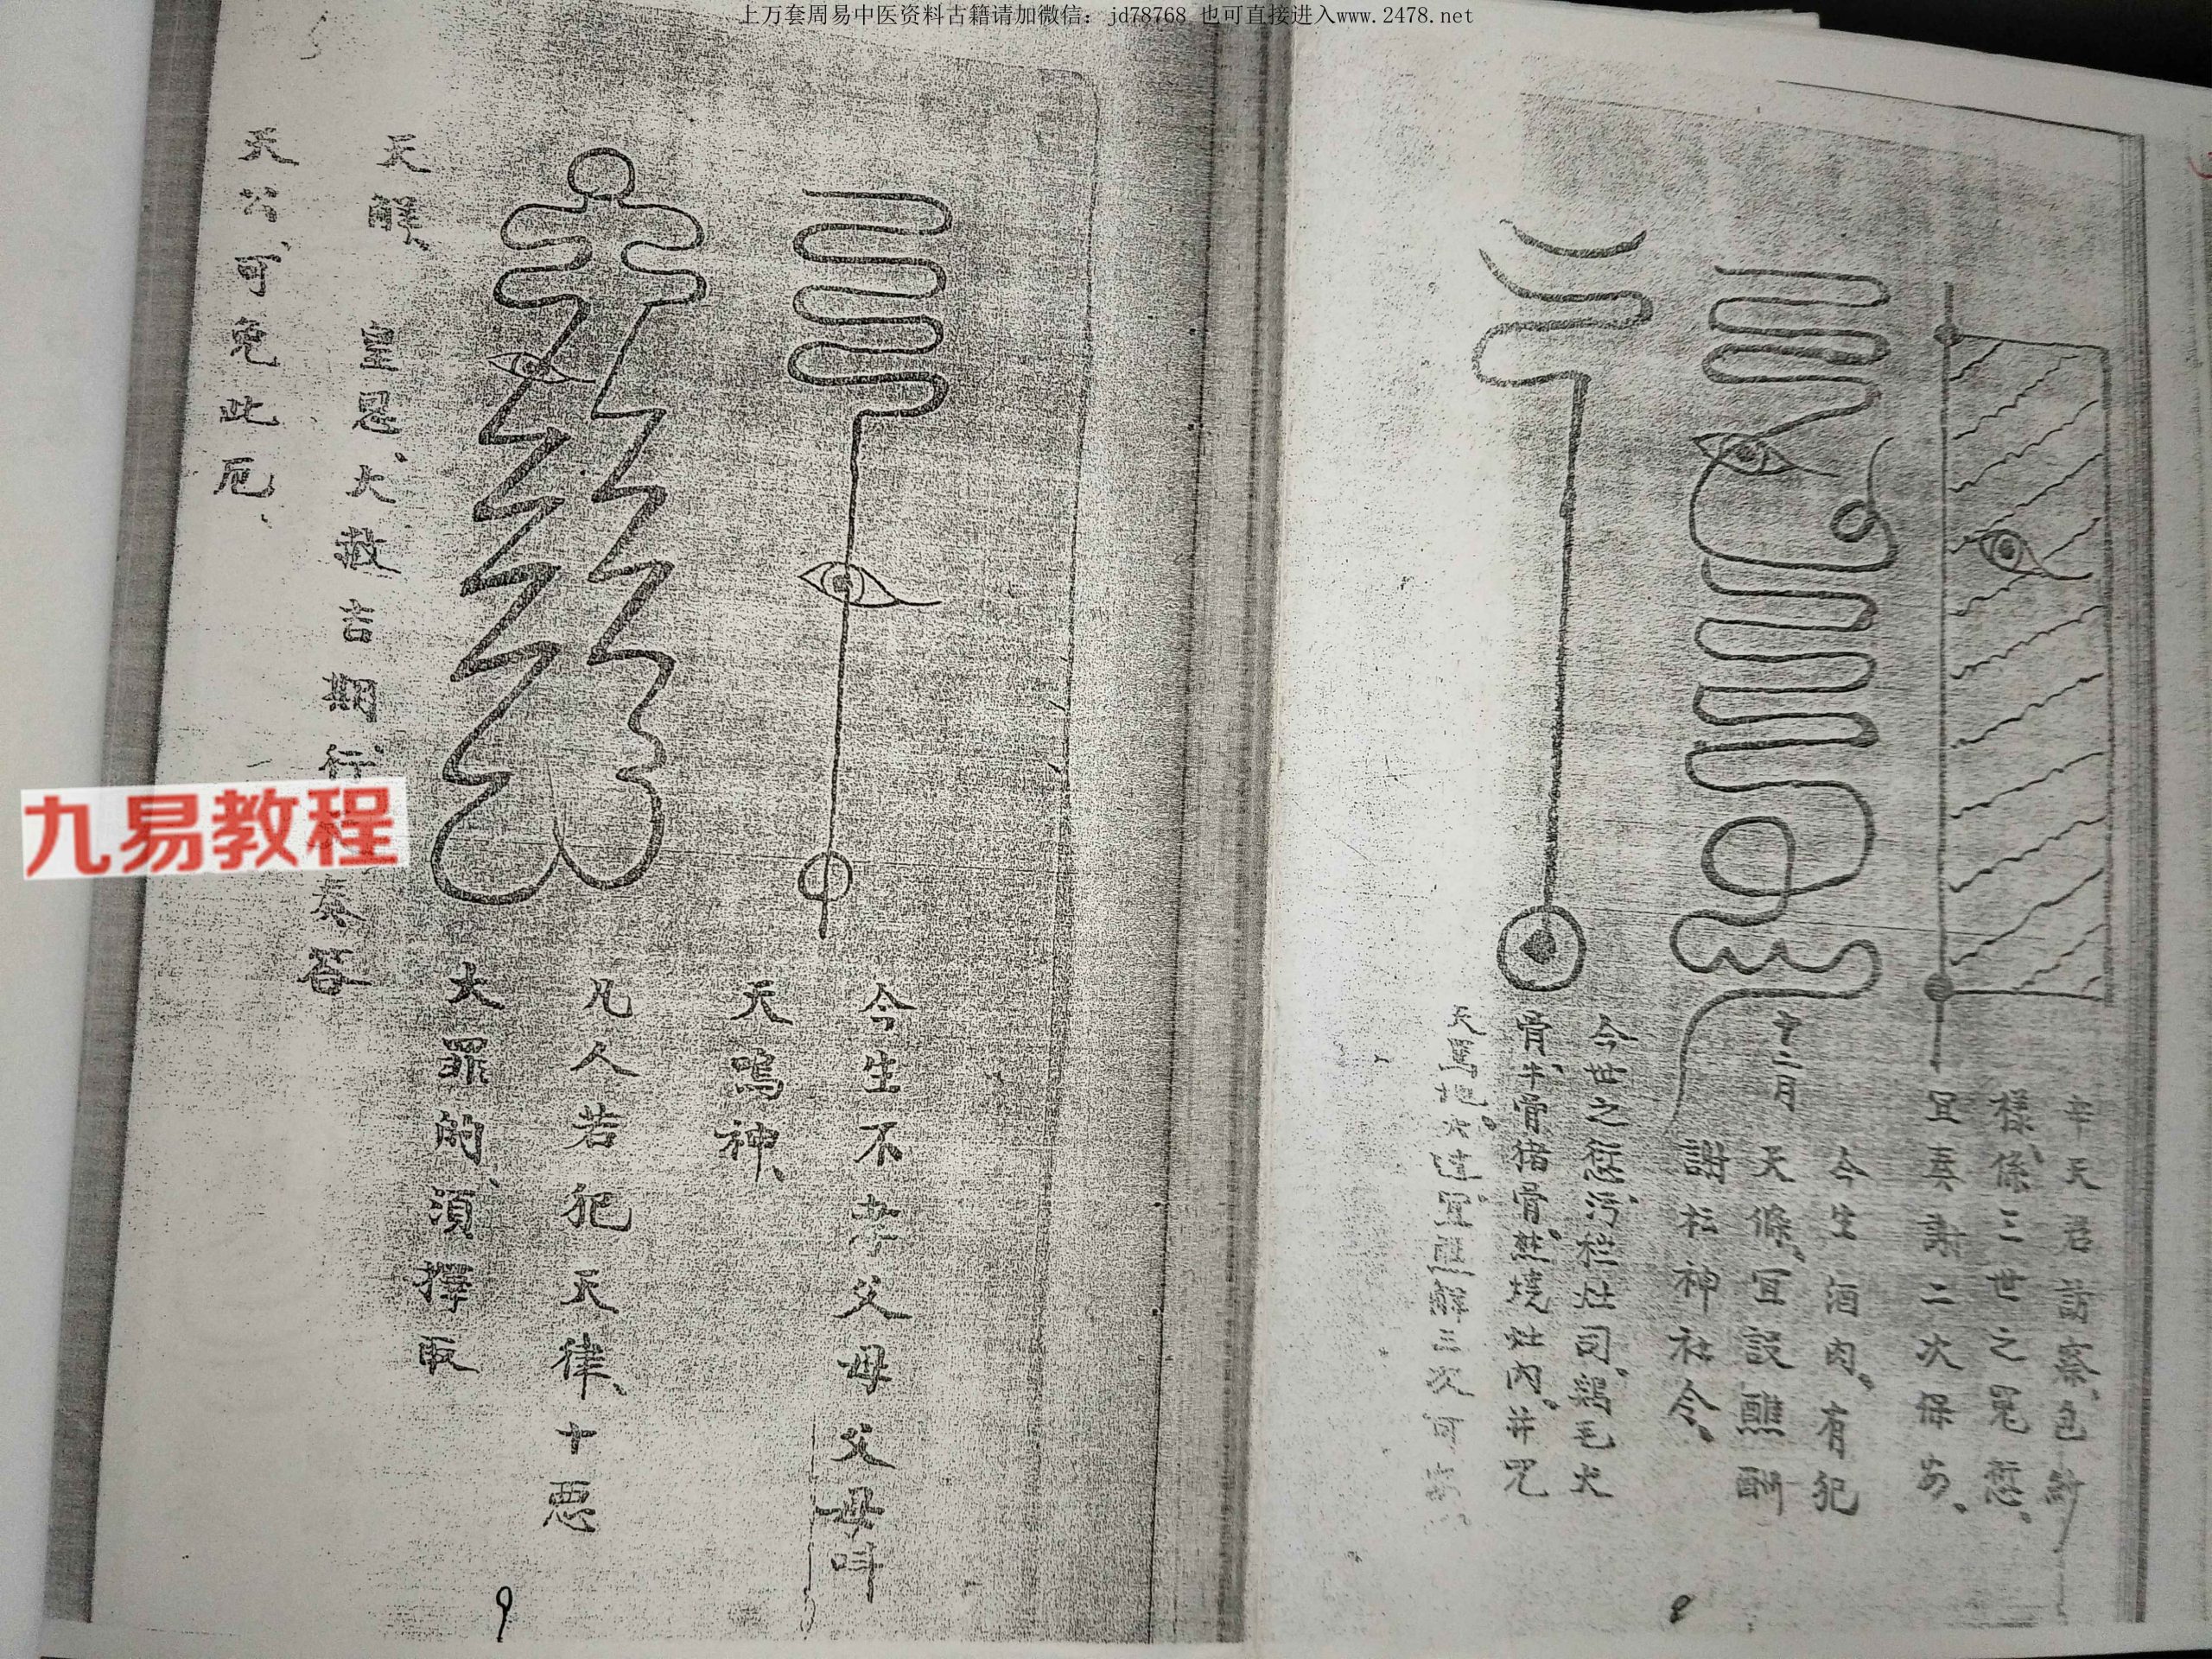 上万套周易中医资料古籍请加微信：jd78768 也可直接进入www.2478.net
辛天君訪察、包
樣、係三世之冤愆。
宜奏謝二次保安。
十二月
今生酒肉。有犯
天條、宜設醮酬
謝松神社令。
今世之愆、污秽灶司。鷄毛火
骨、牛骨猪骨。燃燒灶内。并咒
宜醮解三次可
8
今生不孝父母父母叫
天鳴神、
凡人若犯天律、十惡
大罪的、須擇取
天解、皇恩、大赦吉期、行奏答
天公、可免此厄、
9
九易教程